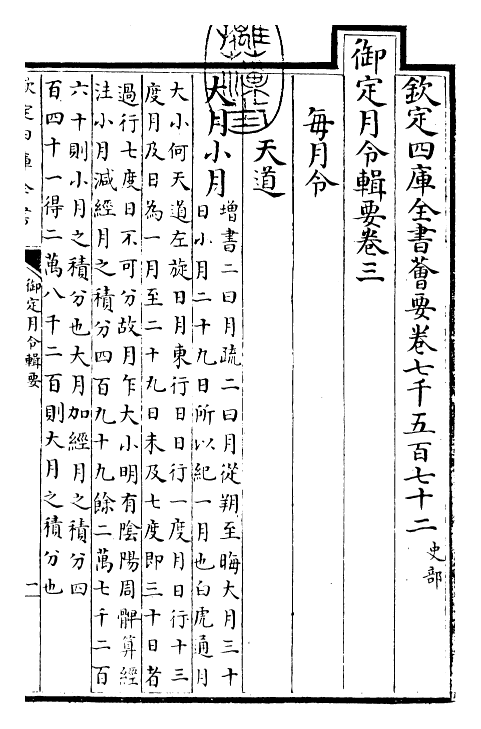 欽定四庫全書薈要卷七千五百七十二 史部
御定月令輯要卷三
每月令
天道
大月小月 增書二曰月疏二曰月從朔至晦大月三十
日小月二十九日所以紀一月也白虎通月
大小何天道左旋日月東行日日行一度月日行十三
度月及日為一月至二十九日未及七度即三十日者
過行七度日不可分故月乍大小明有陰陽周髀算經
注小月減經月之積分四百九十九餘二萬七千二百
六十則小月之積分也大月加經月之積分四
百四十一得二萬八千二百則大月之積分也
欽定四庫全書
御定月令輯要
一